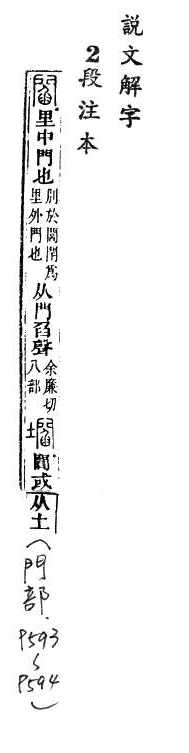 說文解字
2段注本
閻里中門也
別於閎閈爲
里外門也
从門臽聲
余廉切
八部
壛閻或从土
(門部.P593~P594)